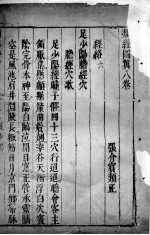 類經圖翼八卷
張介賓類註
經絡六
足少陽膽經穴
膽經穴歌
足少陽經瞳子髎四十三穴行迢迢聽會客主
頷厭集懸顱懸釐曲鬢翹率谷天衝浮白次竅
陰完骨本神至陽白臨泣開目窗正營承靈腦
空是風池肩井淵液長輒筋日月京門鄉帶脈